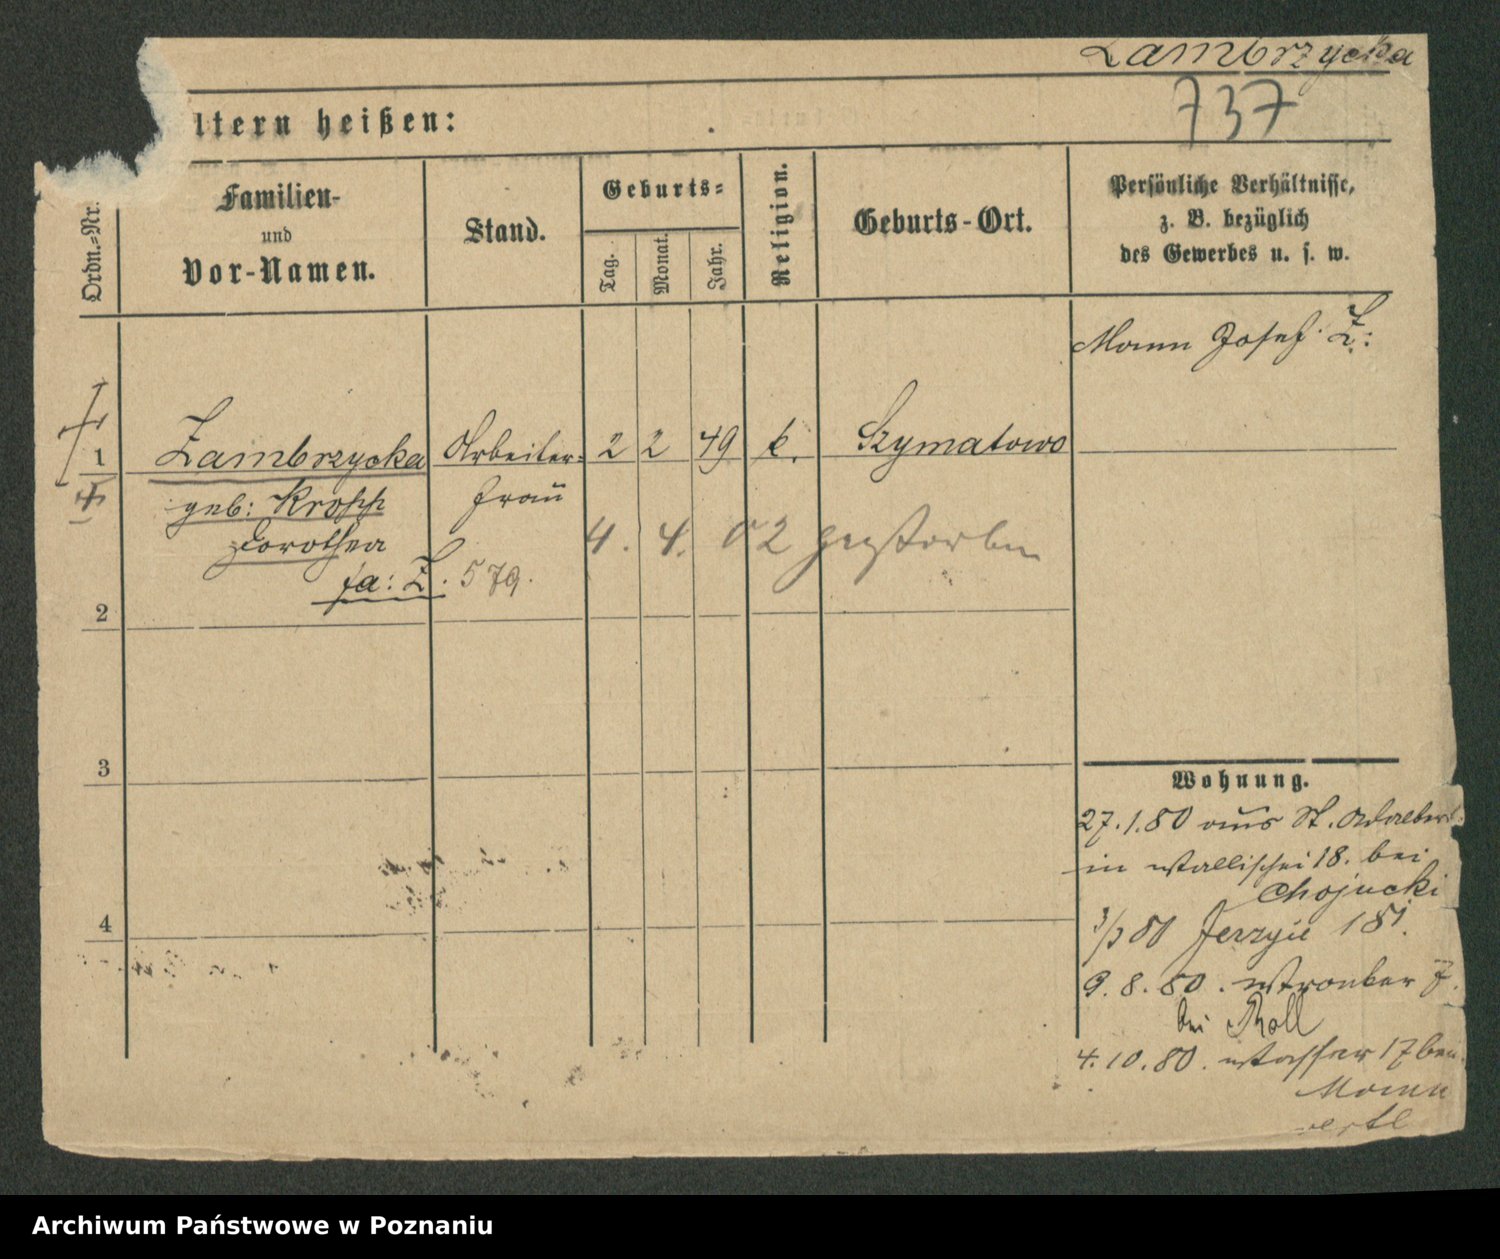 Zambrzycka
737
ltern heißen:
Ordn.=Nr.
Familien-
und
Vor-Namen.
Stand.
Geburts=
Tag.
Monat.
Jahr.
Religion.
Geburts-Ort.
Persönliche Verhältnisse,
z. B. bezüglich
des Gewerbes u. s. w.
Mann Josef Z:
1 Zambrzycka Arbeiter= 2 2 49 k. Szymatowo
geb: Kropp frau
Dorothea
4. 4. 02 gestorben
fa: Z. 579.
2
3
4
Wohnung.
27.1.80 aus St. Adalbert
in Wallischei 18. bei
Chojnacki
3/3 80 Jerzyce 181.
9.8.80. Wronker 7.
bei Roll
4.10.80. Wasser 17 bei
Mann